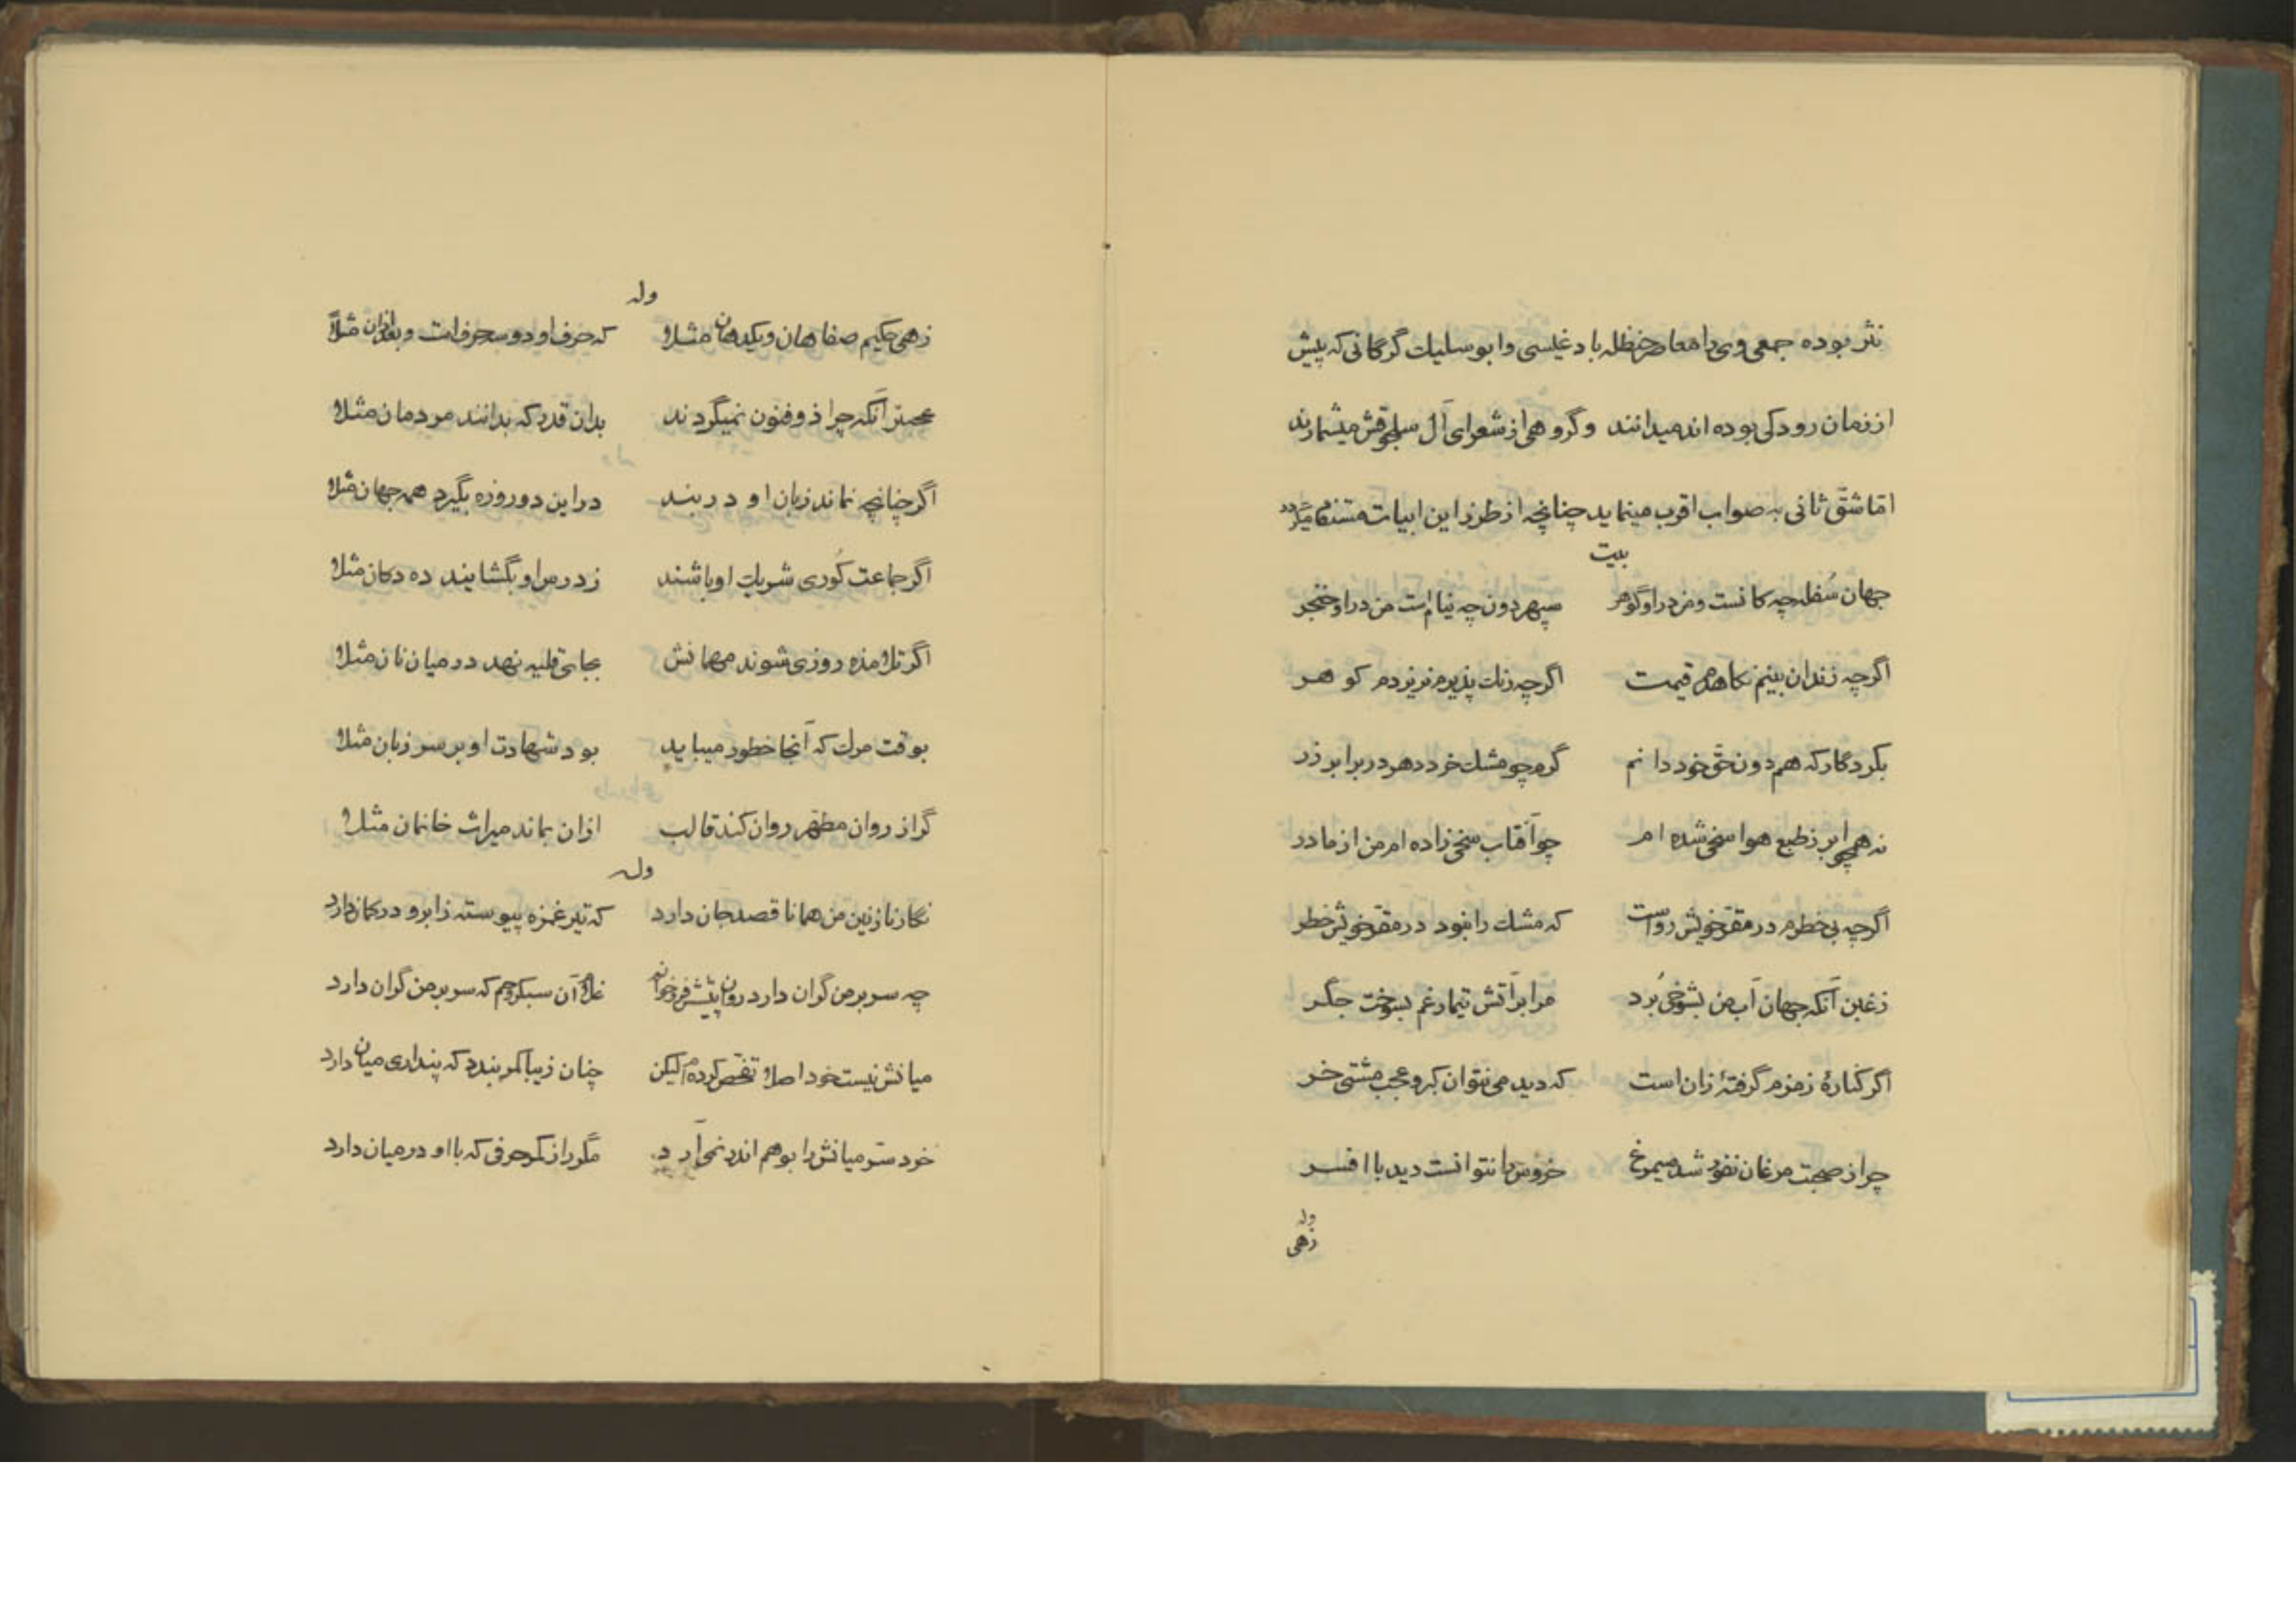 نثر بوده جمعی وی را معاصر حنظله باد غیسی و ابو سلیک گرگانی که پیش
از زمان رودکی بوده اند میدانند و گروهی از شعرای آل سلجوقش میشمارند
امّا شقّ ثانی به صواب اقرب مینماید چنانچه از طرز این ابیات مستفاد میگردد
بیت
جهان سُفله چه کانست و من در او گوهر سپهر دون چه نیام است من در او خنجر
اگرچه زندان بینم نکاهدم قیمت اگرچه زنک پذیرم نریزدم کوهر
بکردکار که هم دون حقّ خود دانم گرم چو مشک خرد دهر در برابر زر
نه همچو ابر ز طبع هوا سخی شده ام چو آفتاب سخی زاده ام من از مادر
اگرچه بی خطرم در مقرّ خویش رواست که مشک را نبود در مقرّ خویش خطر
ز غبن آنکه جهان آب من بشوخی بُرد مرا بر آتش تیمار غم بسوخت جگر
اگر کنارهٔ زمزم گرفتهٔ زان است که دید می نتوان کبر و عجب مشتی خر
چرا ز صحبت مرغان نفور شد سیمرغ خروس را نتوانست دید با افسر
وله
زهی
وله
زهی حکیم صفاهان و یکدهان مثلا که حرف او دو سه حرف است و بعد ازان مثلاً
عجبتر آنکه چرا ذو فنون نمیگردند بدان قدر که بدانند مردمان مثلا
اگر چنانچه نماند زبان او در بند در این دو روزه بگیرد همه جهان مثلا
اگر جماعت کُوری شریک او باشند ز درس او بگشایند ده دکان مثلا
اگر تلامذه روزی شوند مهمانش بجای قلیه نهد در میان نان مثلا
بوقت مرک که آنجا خطور میباید بود شهادت او بر سر زبان مثلا
گر از روان مطهّر روان کند قالب ازان بماند میراث خانمان مثلا
وله
نگار نازنین من همانا قصد جان دارد که تیر غمزه پیوسته ز ابرو در کمان دارد
چه سر بر من گران دارد روان پیشش فرو خوانم غلام آن سبکروحم که سر بر من گران دارد
میانش نیست خود اصلا تفحّص کرده ام لیکن چنان زیبا کمر بندد که پنداری میان دارد
خرد سرّ میانش را بوهم اندر نمی آرد مگر راز کمر حرفی که با او در میان دارد